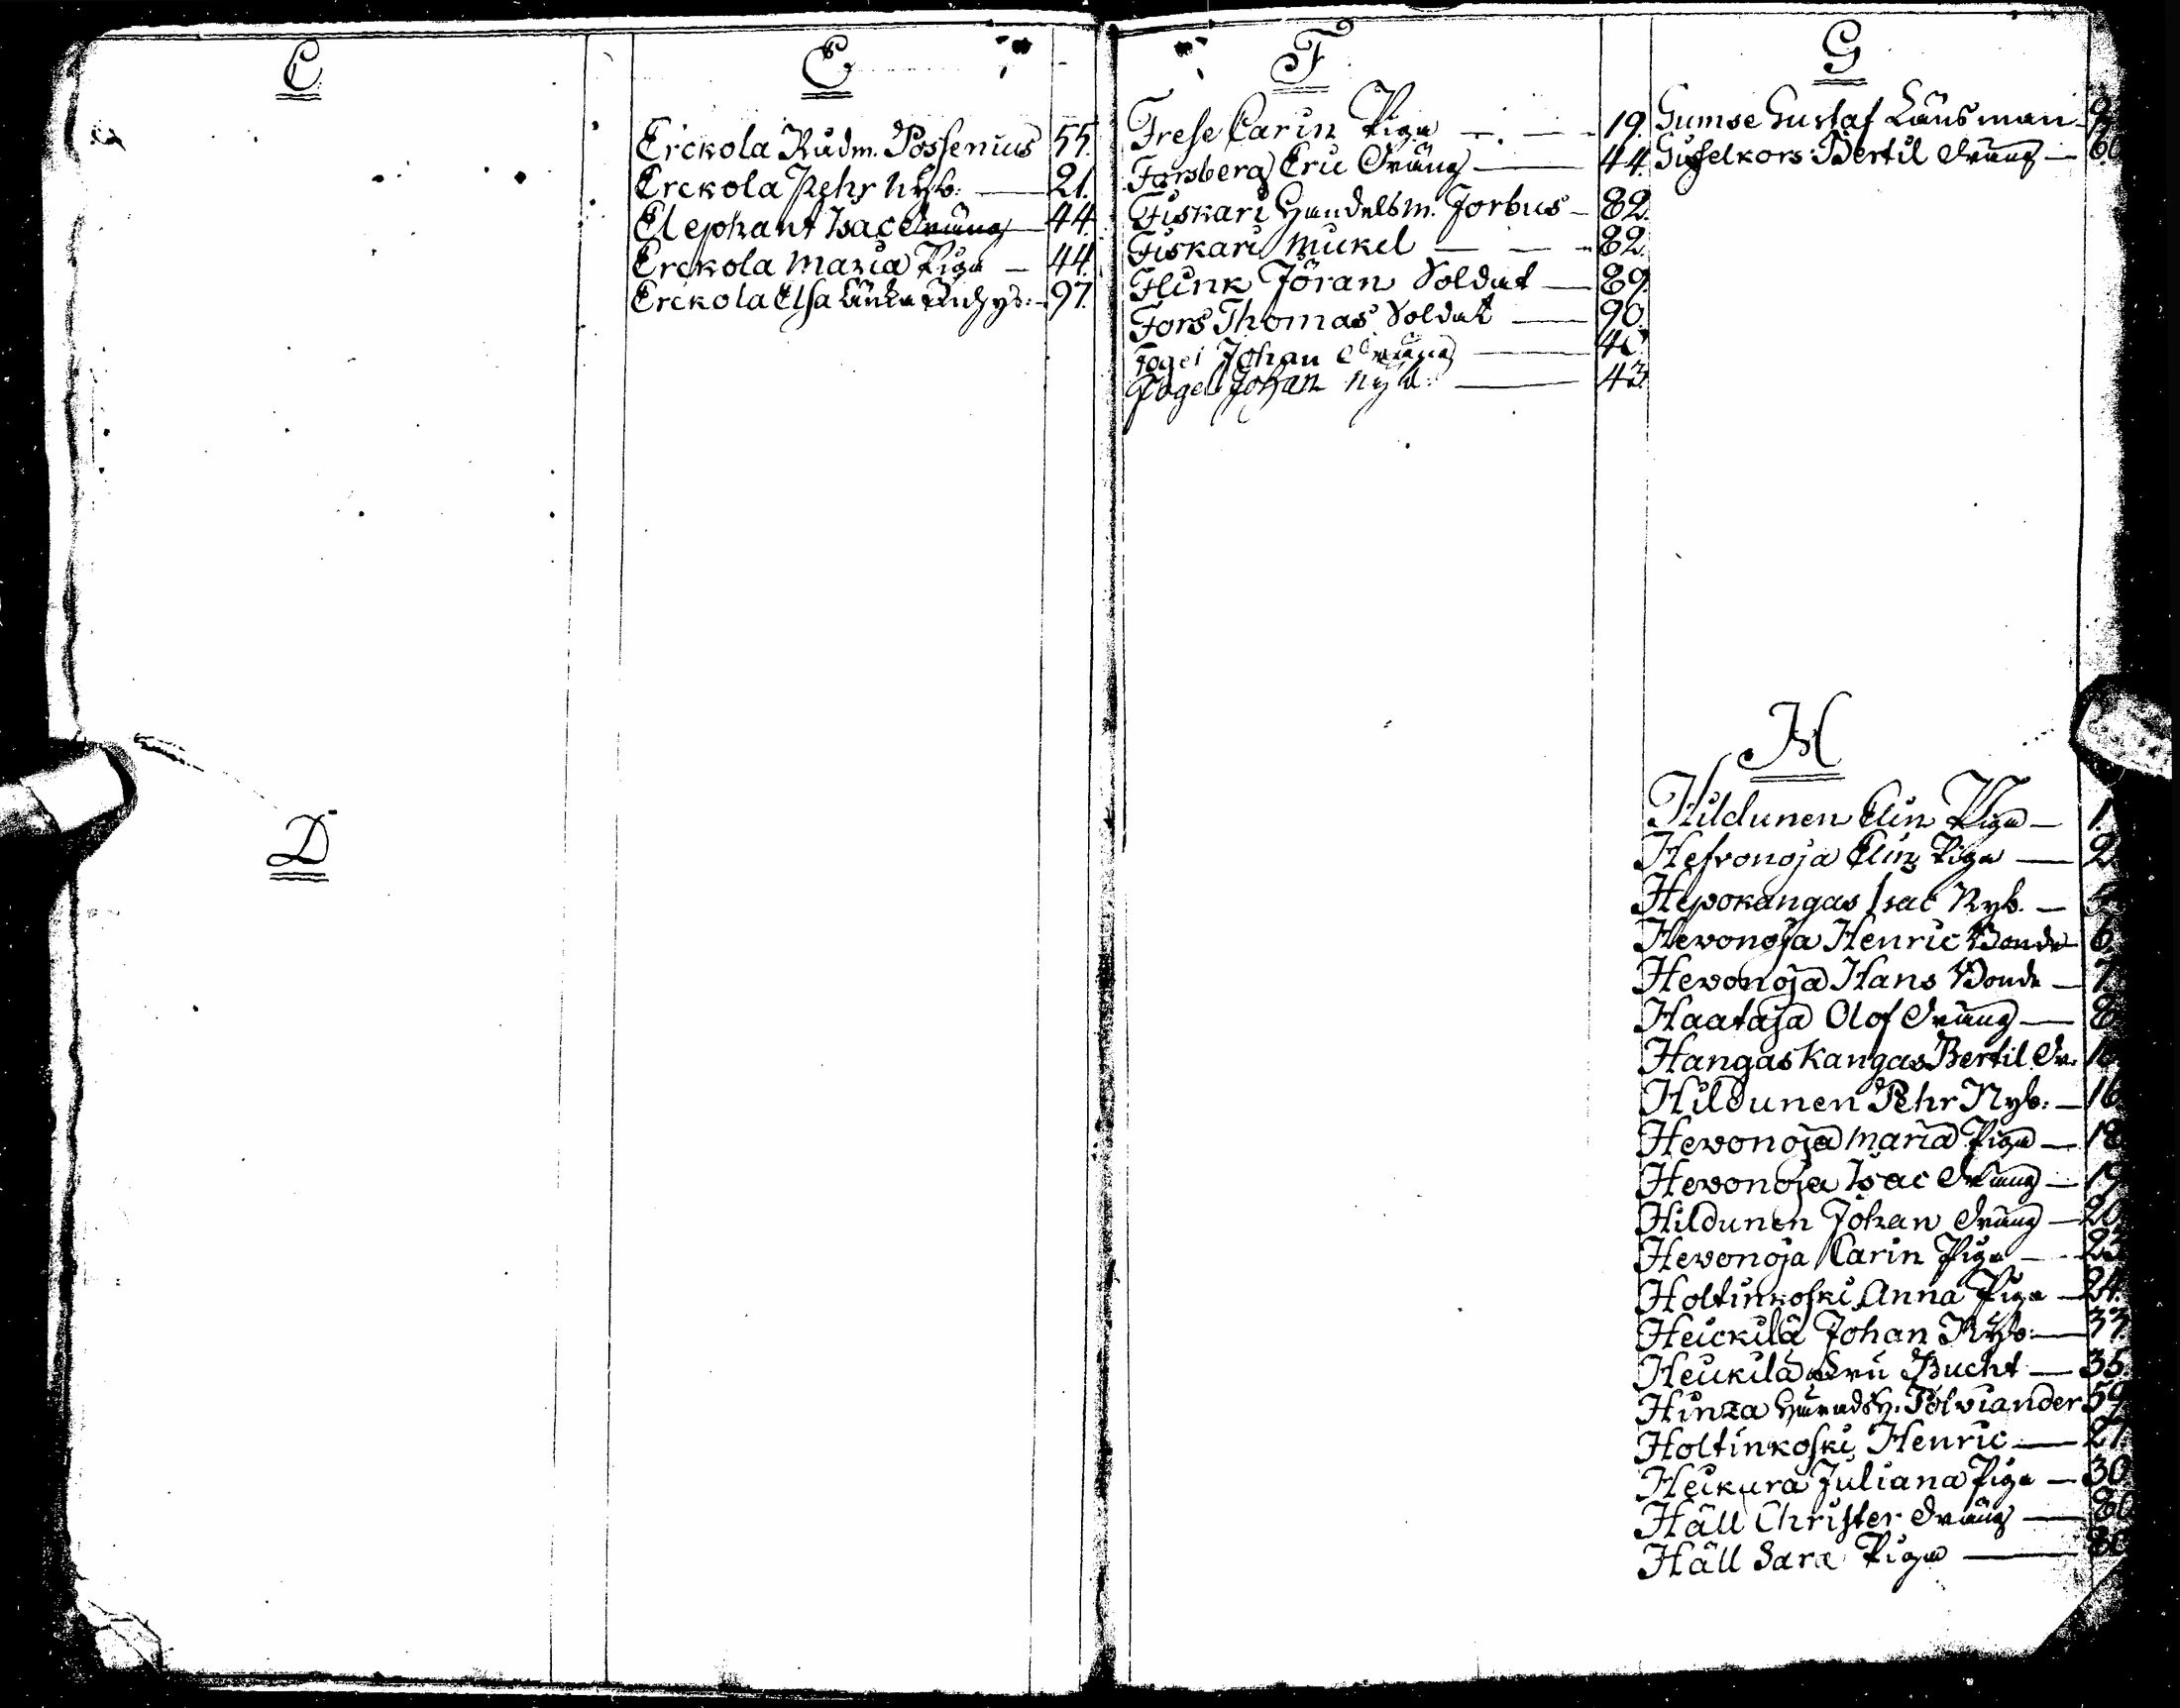 C
D
E
Erckola Rådm. Possenius 55.
Erckola Pehr Nyb: 21.
Elephant Isac Dräng 44.
Erckola Maria Piga 44.
Erckola Elsa Änka 97.
F
Frese Carin Piga 19.
Forsberg Eric Dräng 44.
Fiskari Handelsm. Forbus 82.
Fiskari Mickel 82.
Flink Jöran Soldat 89.
Fors Thomas Soldat 90.
Fogel Johan Dräng
Fogel Johan Nyb: 43.
G
Gumse Gustaf Länsman
Bertil Dräng
H
Hildunen Elin Piga 1.
Hefvonoja Elin Piga 2.
Hepokangas Isac Nyb.
Hevonoja Henric Bonde 6.
Hevonoja Hans Bonde 7.
Haataja Olof Dräng 8
Hangaskangas Bertil Dr.
Hildunen Pehr Nyb: 16
Hevonoja Maria Piga 18
Hevonoja Isac Dräng 19
Hildunen Johan Dräng 20
Hevonoja Carin Piga 23
Holtinkoski Anna Piga 24.
Heickilä Johan Nyb: 33
Heickilä Bucht 35.
Hinza Polviander 59
Holtinkoski Henric 27.
Heikura Juliana Piga 30
Häll Christer Dräng 80
Häll Sara Piga 80